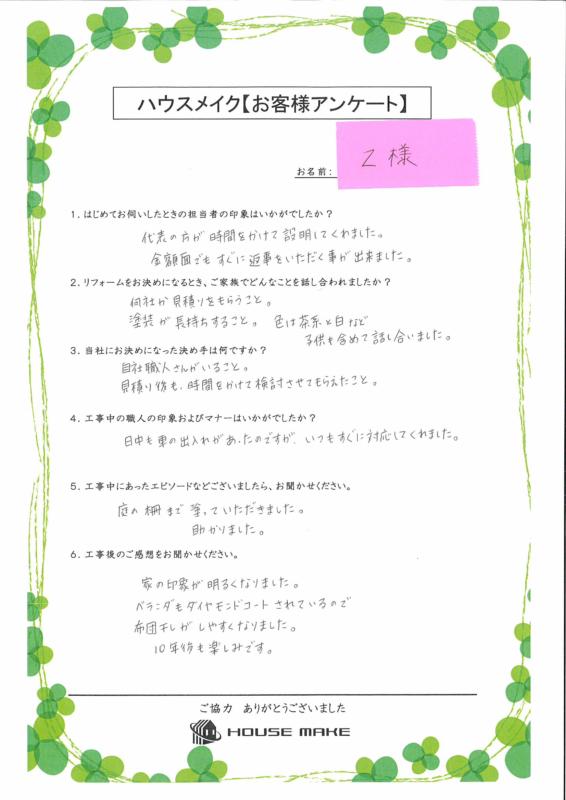 ハウスメイク【お客様アンケート】
お名前：
Z様
1．はじめてお伺いしたときの担当者の印象はいかがでしたか？
代表の方が時間をかけて説明してくれました。
金額面でもすぐに返事をいただく事が出来ました。
2．リフォームをお決めになるとき、ご家族でどんなことを話し合われましたか？
何社か見積りをもらうこと。
塗装が長持ちすること。 色は茶系と白など
子供も含めて話し合いました。
3．当社にお決めになった決め手は何ですか？
自社職人さんがいること。
見積り後も、時間をかけて検討させてもらえたこと。
4．工事中の職人の印象およびマナーはいかがでしたか？
日中も車の出入れがあったのですが、いつもすぐに対応してくれました。
5．工事中にあったエピソードなどございましたら、お聞かせください。
庭の柵まで塗っていただきました。
助かりました。
6．工事後のご感想をお聞かせください。
家の印象が明るくなりました。
ベランダもダイヤモンドコートされているので
布団干しがしやすくなりました。
10年後も楽しみです。
ご協力 ありがとうございました
HOUSE MAKE